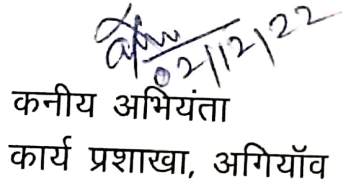 02/12/22
कनीय अभियंता
कार्य प्रशाखा, अगियॉव